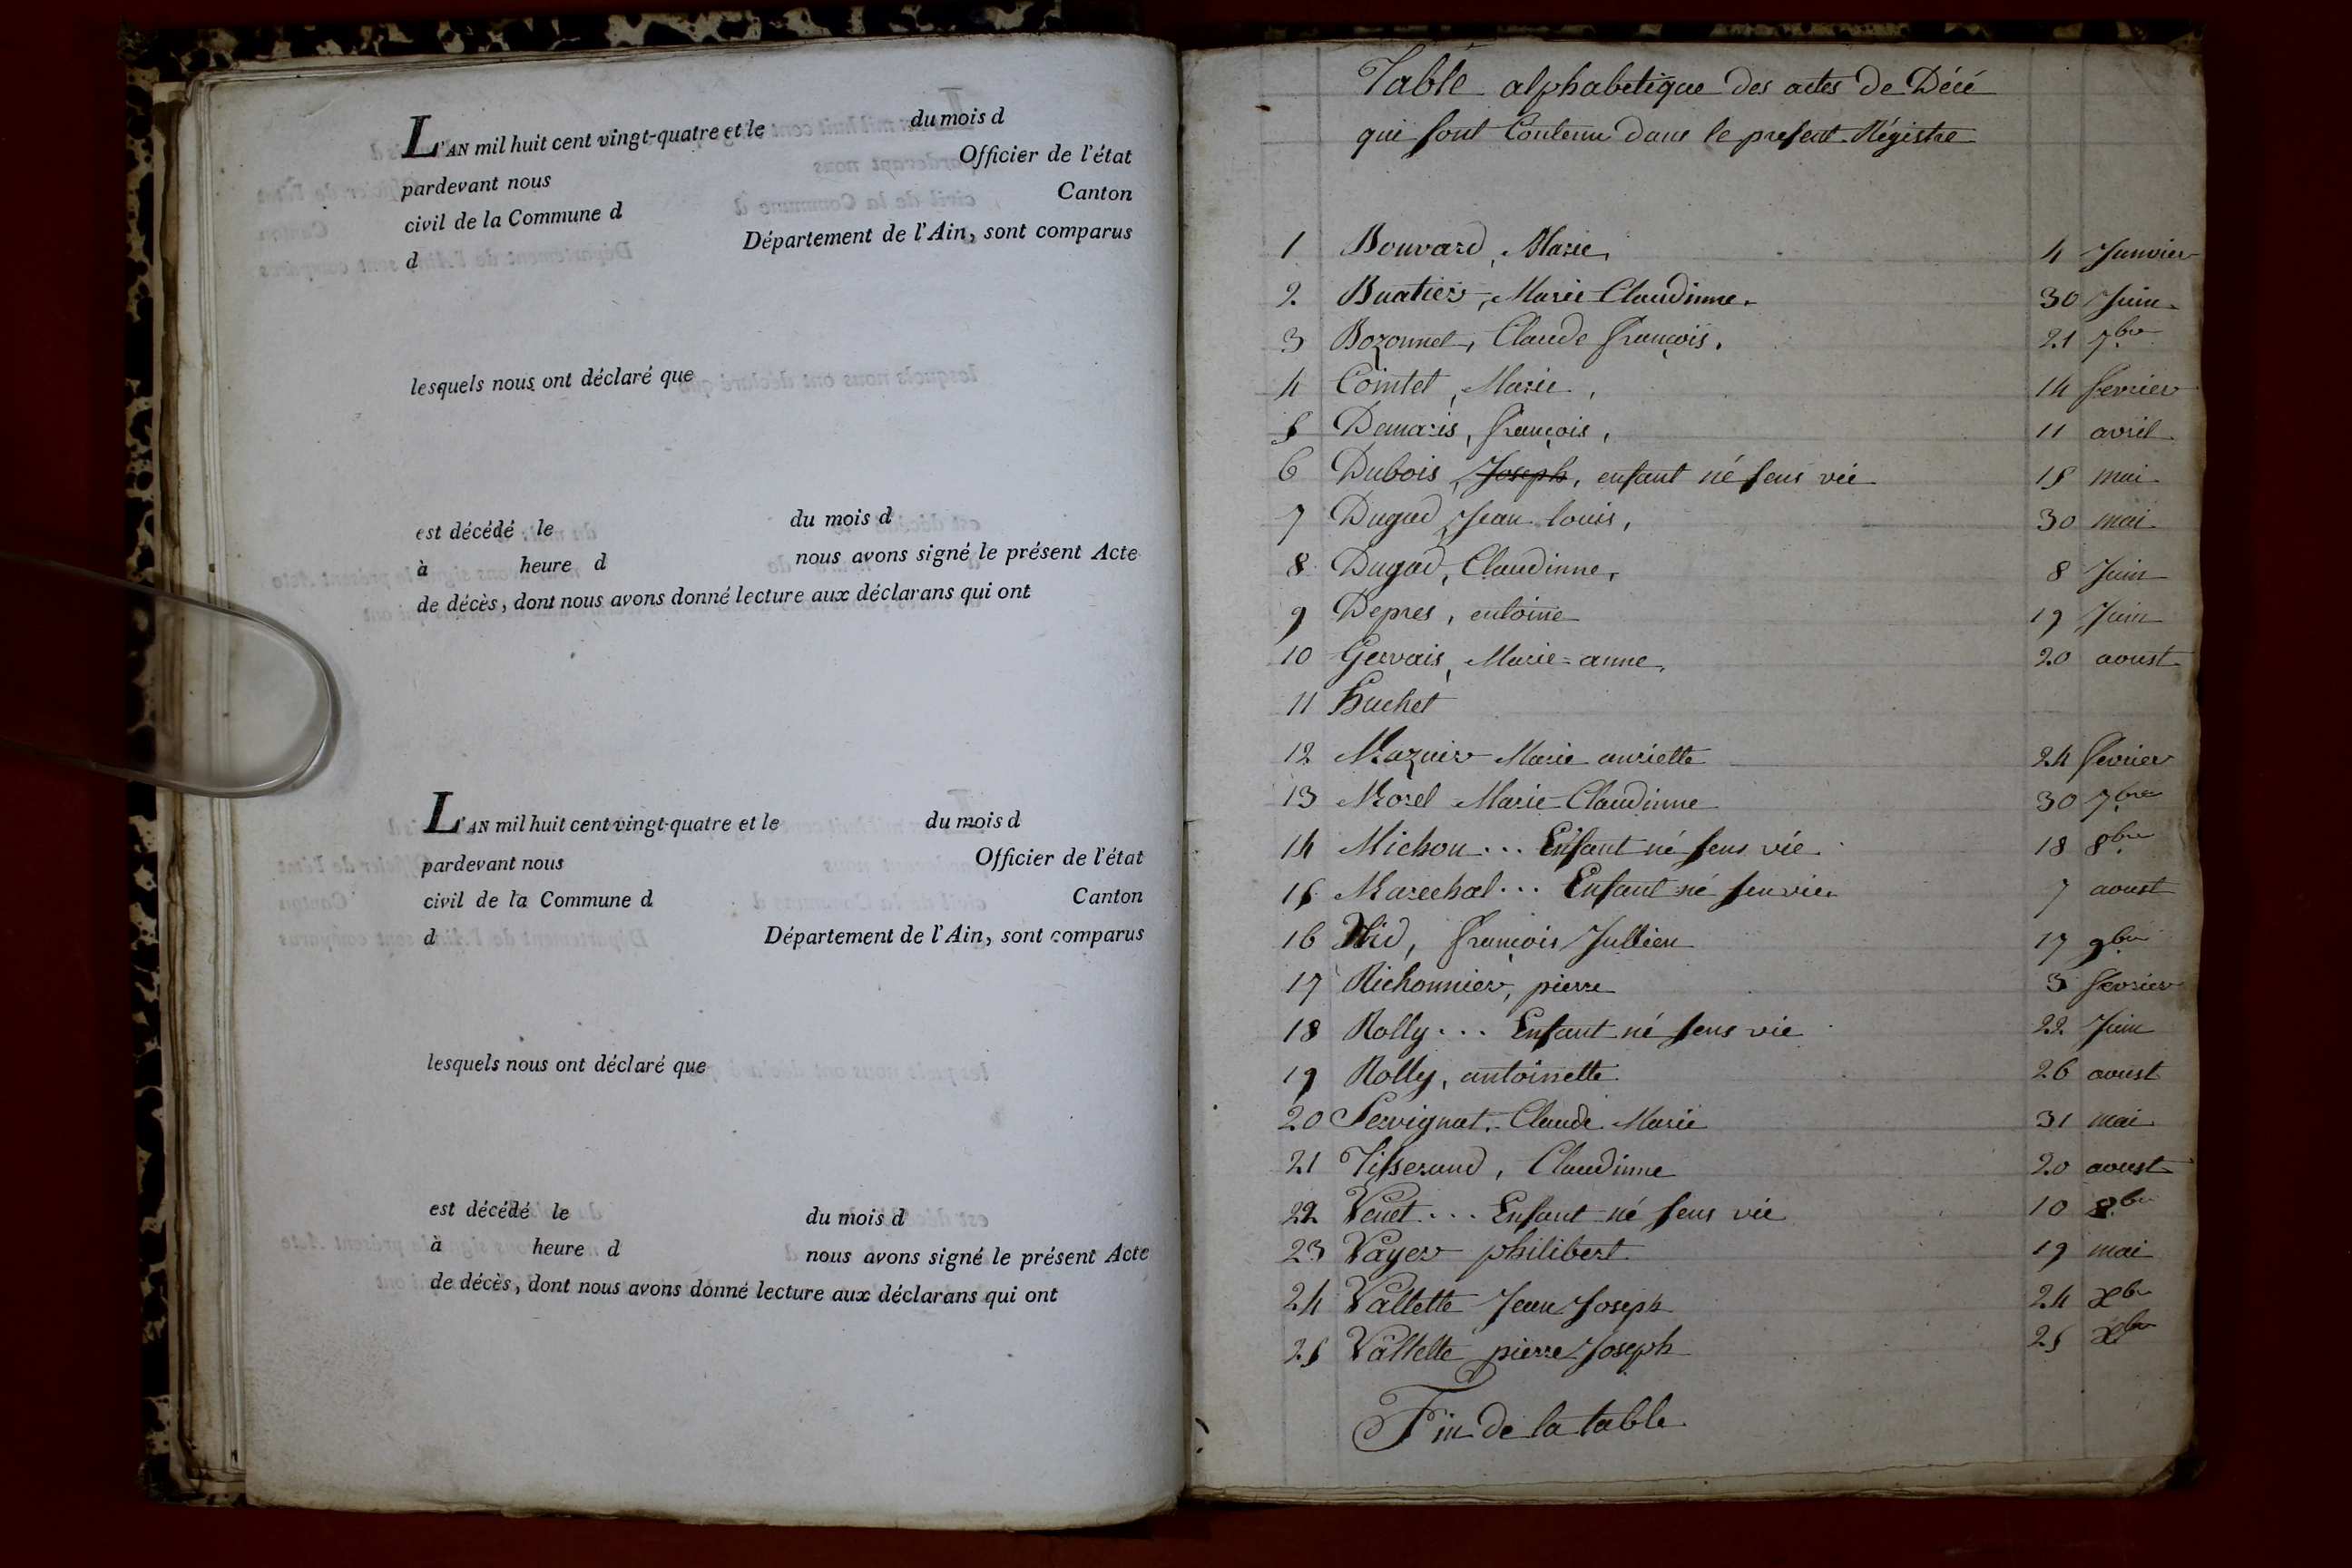 L'AN mil huit cent vingt-quatre et le du mois d
pardevant nous Officier de l'état
civil de la Commune d Canton
d Département de l'Ain, sont comparus
lesquels nous ont déclaré que
est décédé le du mois d
à heure d nous avons signé le présent Acte
de décès, dont nous avons donné lecture aux déclarans qui ont
L'AN mil huit cent vingt-quatre et le du mois d
pardevant nous Officier de l'état
civil de la Commune d Canton
d Département de l'Ain, sont comparus
lesquels nous ont déclaré que
est décédé le du mois d
à heure d nous avons signé le présent Acte
de décès, dont nous avons donné lecture aux déclarans qui ont
Table alphabetique des actes de Décé
qui sont Contenu dans le present Régistre
1 Bouvard, Marie, 4 Janvier
2 Buatier, Marie Claudinne. 30 Juin
3 Bozonnet, Claude françois. 21 7bre
4 Cointet, Marie, 14 fevrier
5 Demaris, françois, 11 avril
6 Dubois, Joseph, enfant né sens vie 15 mai
7 Dugad, Jean louis, 30 mai
8 Dugad, Claudinne, 8 Juin
9 Depres, entoine 19 Juin
10 Gervais, Marie=anne, 20 aoust
11 Huchet
12 Mazuir Marie anriette 24 fevrier
13 Morel Marie Claudinne 30 7bre
14 Michon... Enfant né sens vie 18 8bre
15 Marechal... Enfant né sen vie 7 aoust
16 Nid, françois Jullien 17 9bre
17 Richonnier, pierre 3 fevrier
18 Rolly... Enfant né sens vie 22 Juin
19 Rolly, antoinette 26 aoust
20 Servignat. Claude Marie 31 mai
21 Tisserand, Claudinne 20 aoust
22 Venet... Enfant né sens vie 10 8bre
23 Vayer philibert 19 mai
24 Vallette Jean Joseph 24 Xbre
25 Vallette pierre Joseph 25 Xbre
Fin de la table